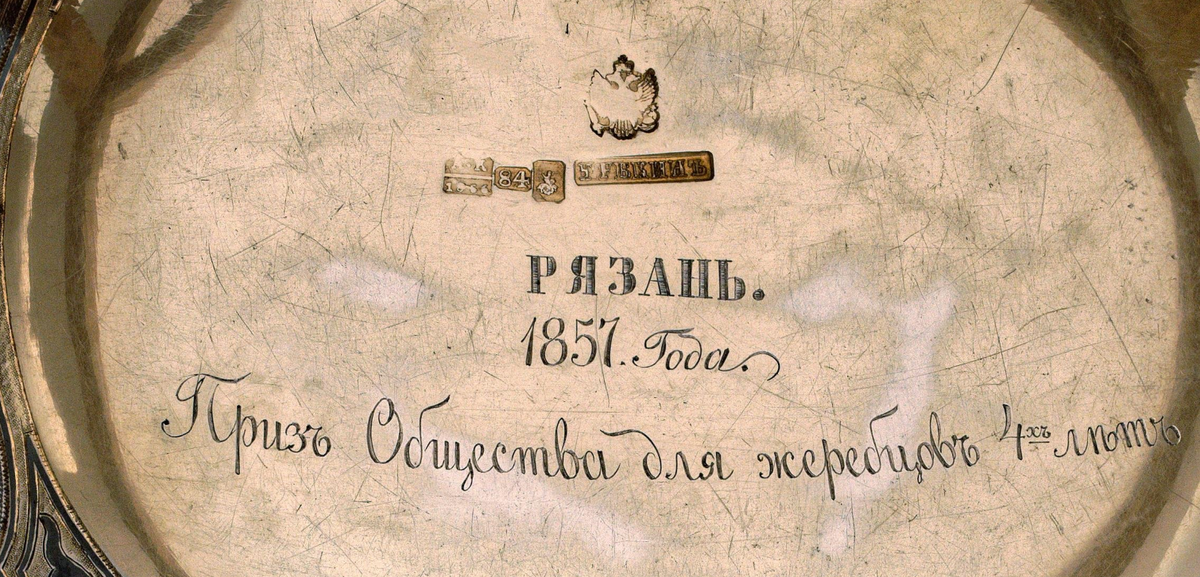 84
РЯЗАНЬ.
1857. Года.
Призъ Общества для жеребцовъ 4хъ лѣтъ